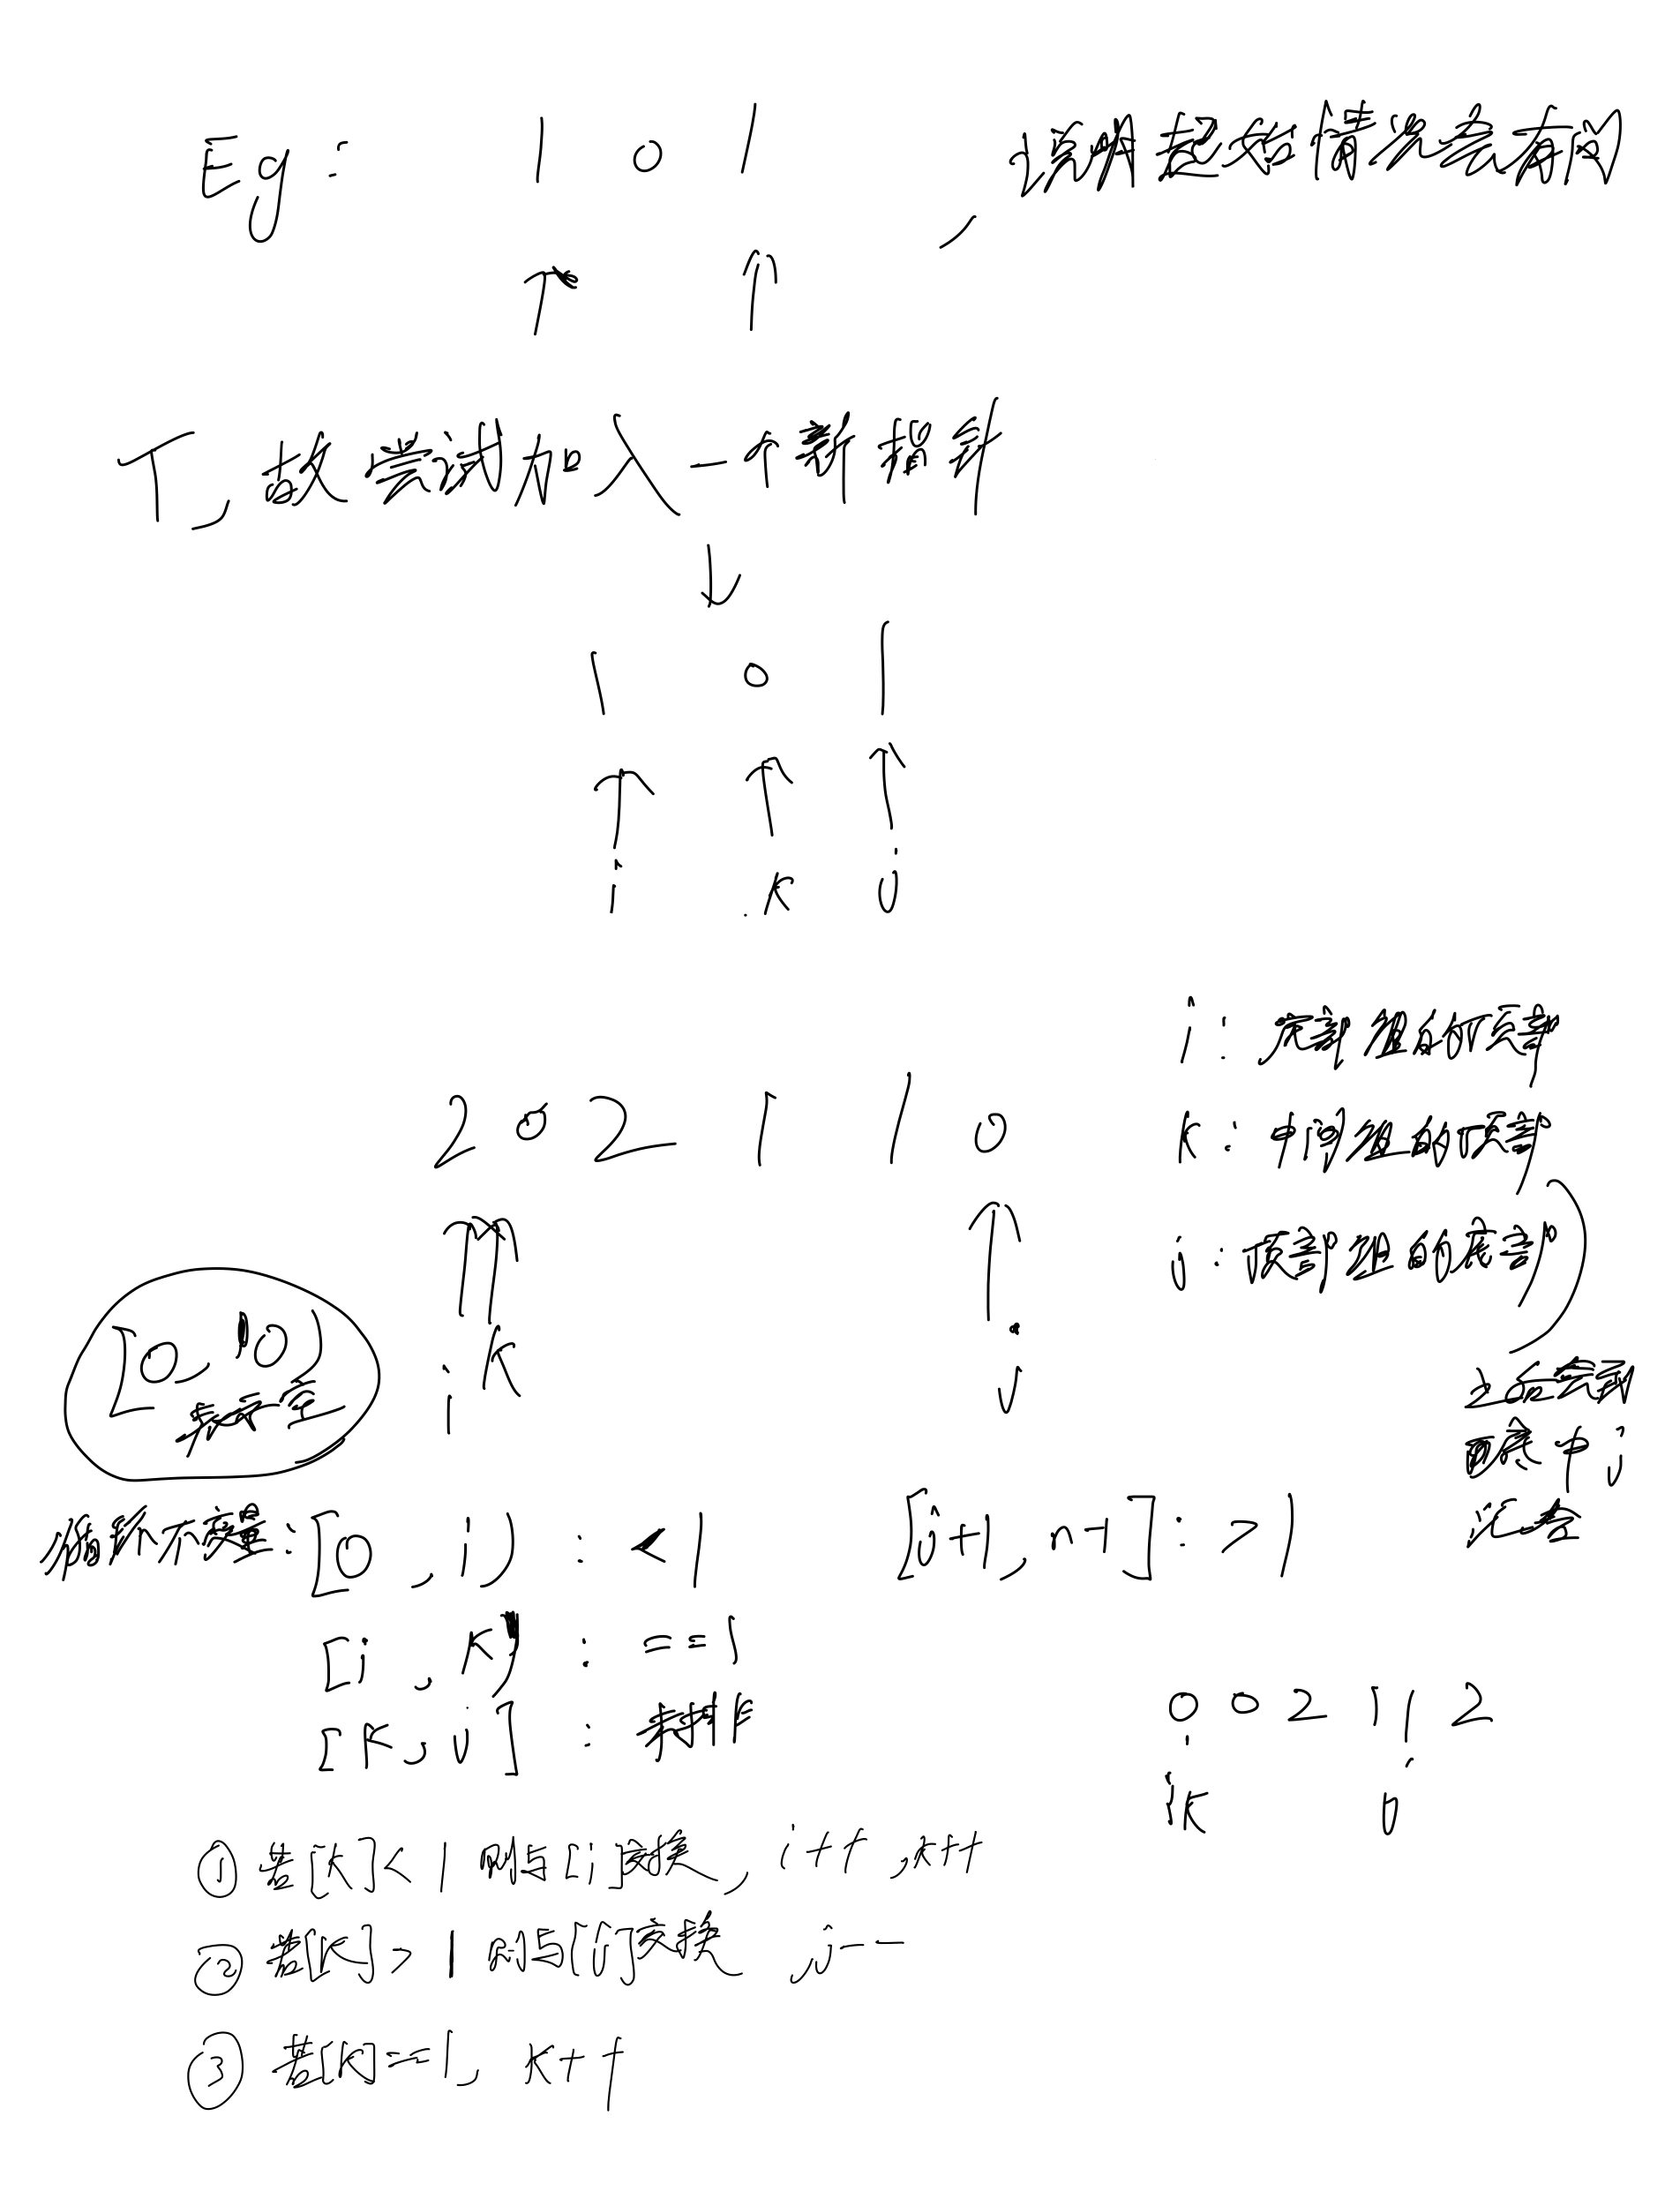 Eg: 1 0 1 , 说明起始情况会有问
T, 故尝试加入一个新指针
1 0 1
i k j
i: 底部组的顶部
2 0 2 1 1 0
k: 中间组的顶部
j: 顶部组的底部
i k j
[0, 0)
表示空
j
循环不变量: [0, i) : <1 [j+1, n-1] : >1
[i, k) : ==1
[k, j] : 未排序
0 0 2 1 1 2
i k j
① 若[k]<1 则与[i]交换, i++, k++
② 若[k]>1 则与[j]交换, j--
③ 若[k]==1, k++